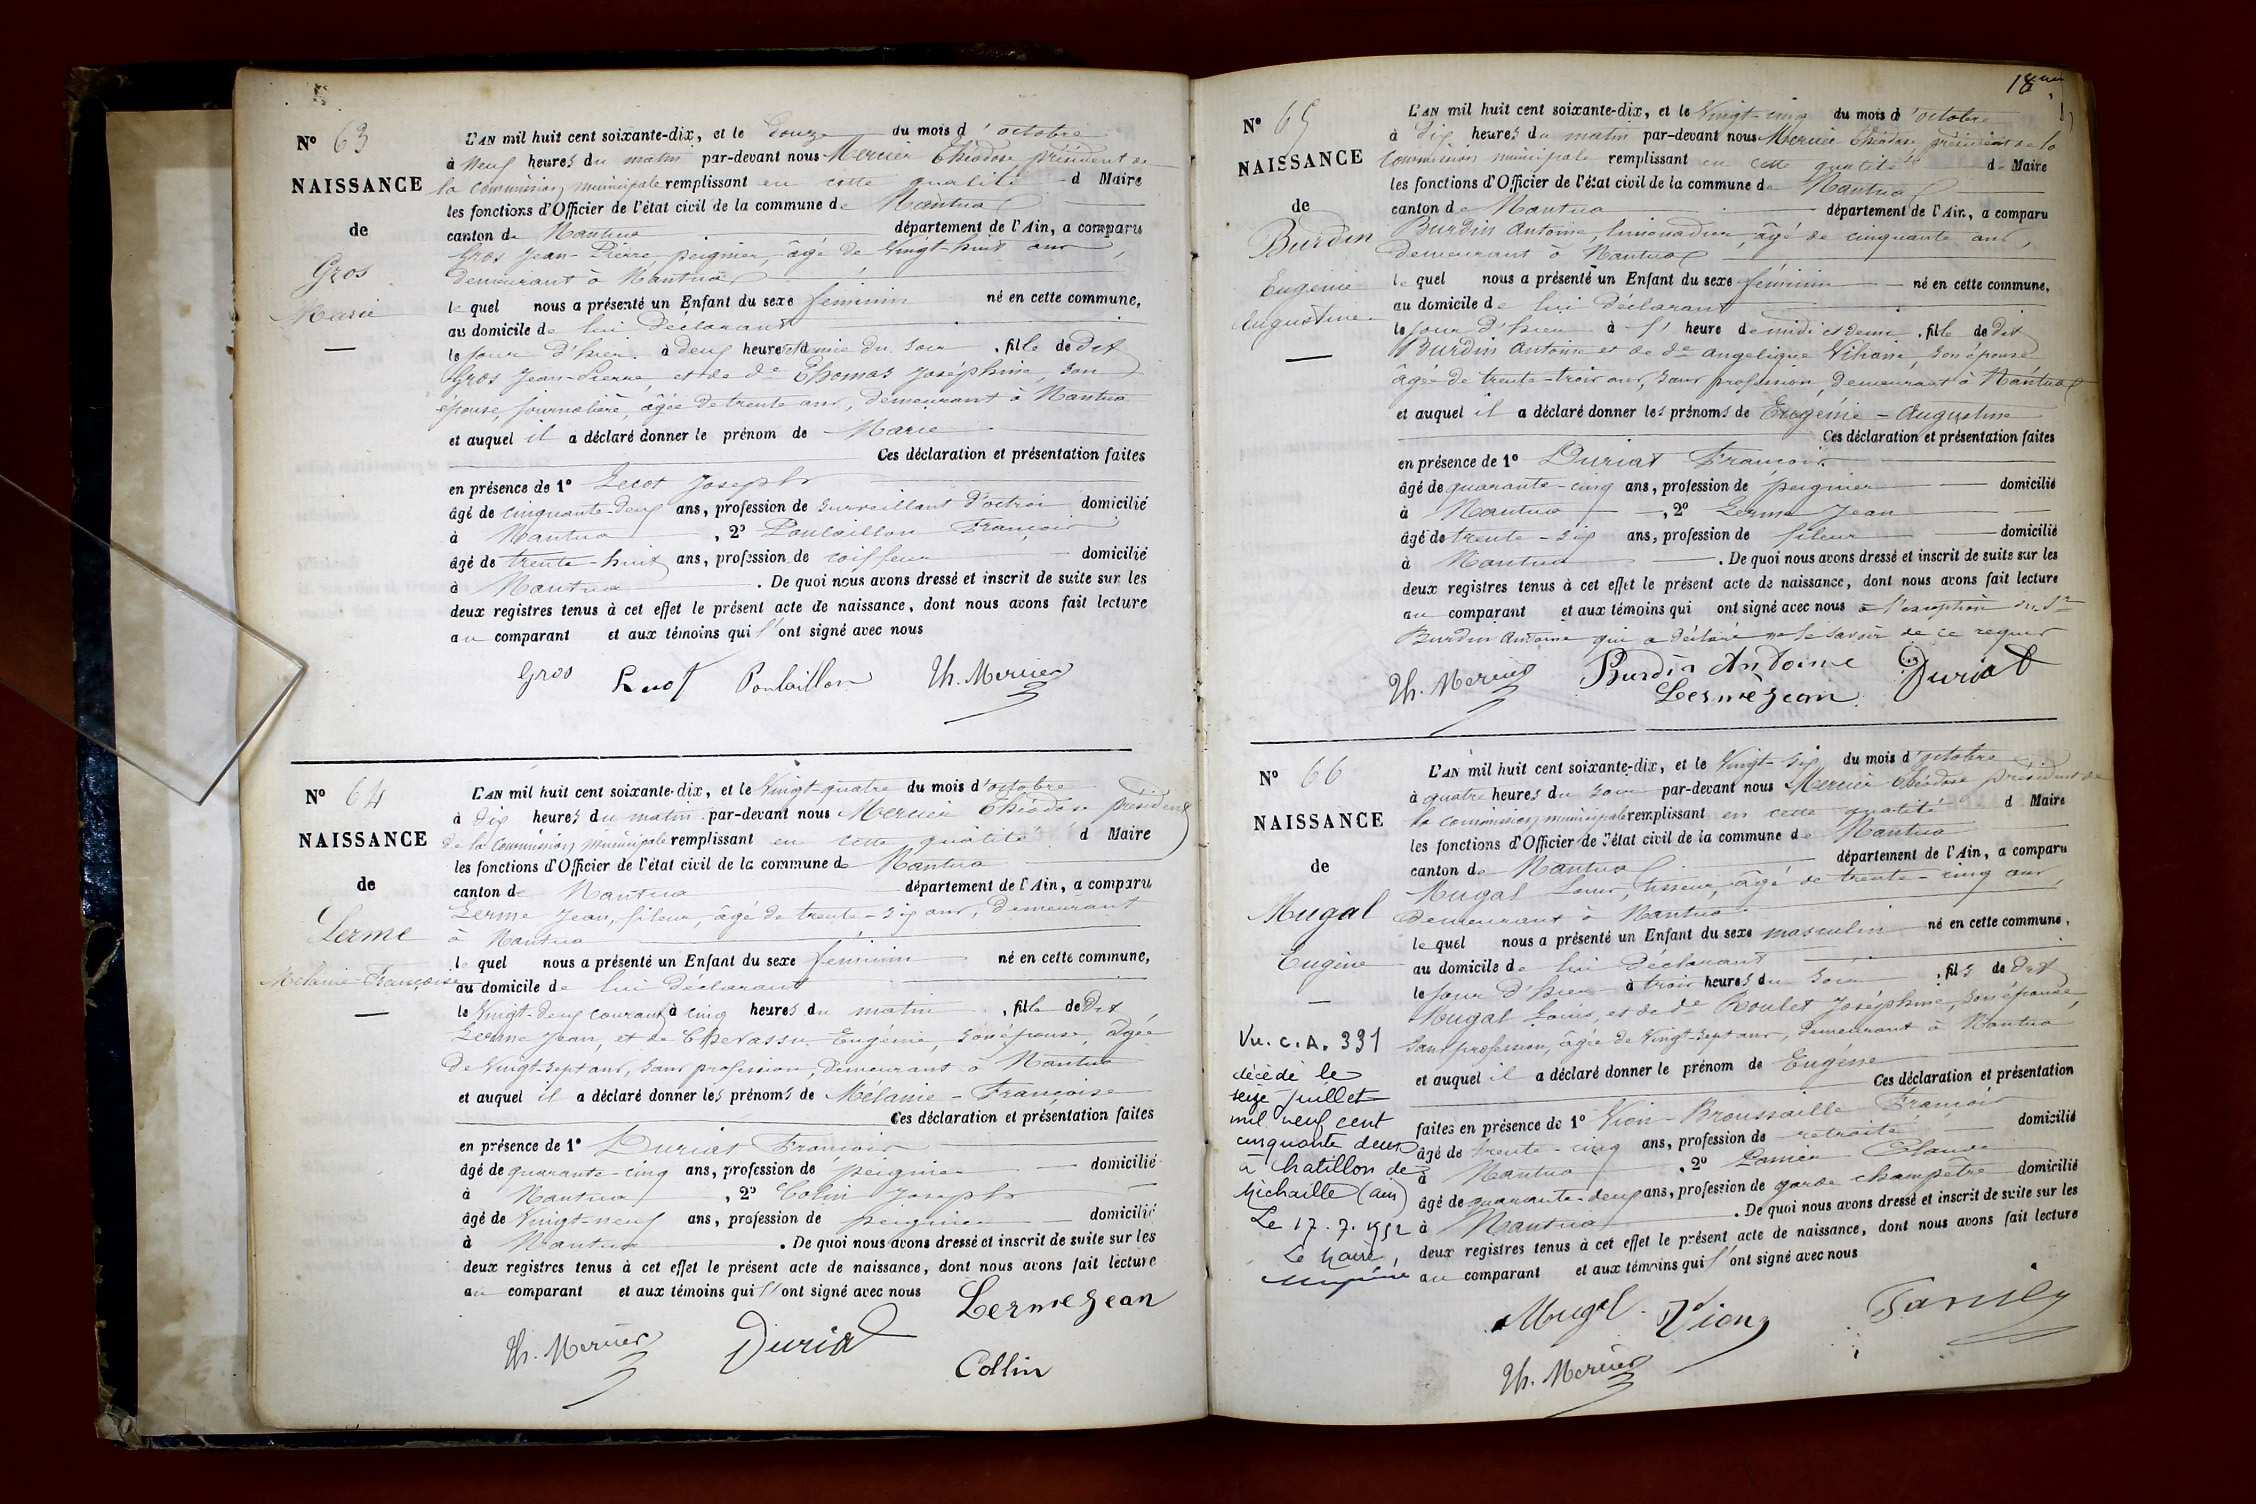 N° 63
NAISSANCE
de
Gros
Marie
L'AN mil huit cent soixante-dix, et le Douze du mois d'octobre
à Neuf heures du matin par-devant nous Mercier Théodose président de
la Commission municipale remplissant en cette qualité d Maire
les fonctions d'Officier de l'état civil de la commune de Nantua
canton de Nantua département de l'Ain, a comparu
Gros Jean-Pierre, peignier, âgé de Vingt-huit ans,
demeurant à Nantua
le quel nous a présenté un Enfant du sexe féminin né en cette commune,
au domicile de lui déclarant
le jour d'hier à deux heures et demie du soir, fille de dit
Gros Jean-Pierre et de de Thomas Joséphine, son
épouse, journalière, âgée de trente ans, demeurant à Nantua
et auquel il a déclaré donner le prénom de Marie
Ces déclaration et présentation faites
en présence de 1° Lecot Joseph
âgé de cinquante-deux ans, profession de surveillant d'octroi domicilié
à Nantua, 2° Poulaillon François
âgé de trente-huit ans, profession de coiffeur domicilié
à Nantua. De quoi nous avons dressé et inscrit de suite sur les
deux registres tenus à cet effet le présent acte de naissance, dont nous avons fait lecture
au comparant et aux témoins qui ont signé avec nous
Gros Lecot Poulaillon Th. Mercier
N° 64
NAISSANCE
de
Lerme
Mélanie Françoise
L'AN mil huit cent soixante-dix, et le Vingt-quatre du mois d'octobre
à dix heures du matin par-devant nous Mercier Théodose, président
de la Commission municipale remplissant en cette qualité d Maire
les fonctions d'Officier de l'état civil de la commune de Nantua
canton de Nantua département de l'Ain, a comparu
Lerme Jean, fileur, âgé de trente-six ans, demeurant
à Nantua
le quel nous a présenté un Enfant du sexe féminin né en cette commune,
au domicile de lui déclarant
le Vingt-deux courant à cinq heures du matin, fille de dit
Lerme Jean, et de Chevassu Eugénie, son épouse, âgée
de Vingt-sept ans, sans profession, demeurant à Nantua
et auquel il a déclaré donner les prénoms de Mélanie-Françoise
Ces déclaration et présentation faites
en présence de 1° Duriat François
âgé de quarante-cinq ans, profession de peignier domicilié
à Nantua, 2° Colin Joseph
âgé de Vingt-neuf ans, profession de peignier domicilié
à Nantua. De quoi nous avons dressé et inscrit de suite sur les
deux registres tenus à cet effet le présent acte de naissance, dont nous avons fait lecture
au comparant et aux témoins qui ont signé avec nous
Lerme Jean
Th. Mercier Duriat
Collin
18
N° 65
NAISSANCE
de
Burdin
Eugénie
Augustine
L'AN mil huit cent soixante-dix, et le Vingt-cinq du mois d'octobre
à Dix heures du matin par-devant nous Mercier Théodose président de la
Commission municipale remplissant en cette qualité de Maire
les fonctions d'Officier de l'état civil de la commune de Nantua
canton de Nantua département de l'Ain, a comparu
Burdin Antoine, limonadier, âgé de cinquante ans,
demeurant à Nantua
le quel nous a présenté un Enfant du sexe féminin né en cette commune,
au domicile de lui déclarant
le jour d'hier à heure de midi et demi, fille de dit
Burdin Antoine et de de Angélique, son épouse
âgée de trente-trois ans, sans profession, demeurant à Nantua
et auquel il a déclaré donner les prénoms de Eugénie-Augustine
Ces déclaration et présentation faites
en présence de 1° Duriat François
âgé de quarante-cinq ans, profession de peignier domicilié
à Nantua, 2° Lerme Jean
âgé de trente-six ans, profession de fileur domicilié
à Nantua. De quoi nous avons dressé et inscrit de suite sur les
deux registres tenus à cet effet le présent acte de naissance, dont nous avons fait lecture
au comparant et aux témoins qui ont signé avec nous à l'exception du Sr
Burdin Antoine qui a déclaré ne le savoir de ce requis
Th. Mercier Burdin Antoine Duriat
Lerme Jean
N° 66
NAISSANCE
de
Mugal
Eugène
Vu. C. A. 331
décédé le
seize juillet
mil neuf cent
cinquante deux
à Chatillon de
Michaille (Ain)
Le 17.7.1952
Le Maire,
L'AN mil huit cent soixante-dix, et le Vingt-six du mois d'octobre
à quatre heures du soir par-devant nous Mercier Théodose président de
la Commission municipale remplissant en cette qualité d Maire
les fonctions d'Officier de l'état civil de la commune de Nantua
canton de Nantua département de l'Ain, a comparu
Mugal Louis, tisseur, âgé de trente-cinq ans,
demeurant à Nantua
le quel nous a présenté un Enfant du sexe masculin né en cette commune,
au domicile de lui déclarant
le jour d'hier à trois heures du soir, fils de dit
Mugal Louis, et de de Roulet Joséphine, son épouse,
sans profession, âgée de Vingt-sept ans, demeurant à Nantua
et auquel il a déclaré donner le prénom de Eugène
Ces déclaration et présentation
faites en présence de 1° Vion-Broussaille François
âgé de trente-cinq ans, profession de retraité domicilié
à Nantua, 2° Claude
âgé de quarante-deux ans, profession de garde champêtre domicilié
à Nantua. De quoi nous avons dressé et inscrit de suite sur les
deux registres tenus à cet effet le présent acte de naissance, dont nous avons fait lecture
au comparant et aux témoins qui ont signé avec nous
Mugal Vion
Th. Mercier